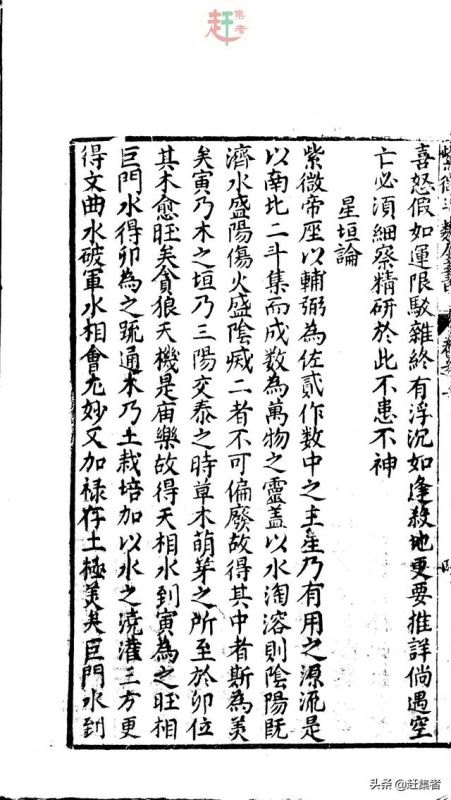 集者
赶
喜怒假如運限駁雜終有浮沉如逢殺地更要推詳倘遇空
亡必須細察精研於此不患不神
星垣論
紫微帝座以輔弼為佐貳作数中之主星乃有用之源流是
以南北二斗集而成数為萬物之靈盖以水淘溶則陰陽既
濟水盛陽傷火盛陰滅二者不可偏廢故得其中者斯為美
矣寅乃木之垣乃三陽交泰之時草木萌芽之所至於卯位
其木愈旺矣貪狼天機是庙樂故得天相水到寅為之旺相
巨門水得卯為之疏通木乃土栽培加以水之澆灌三方更
得文曲水破軍水相會尤妙又加禄存土極美矣巨門水到
头条 @赶集者